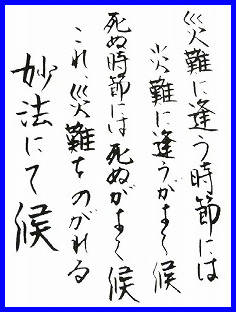 災難に逢う時節には
災難に逢うがよく候
死ぬ時節には死ぬがよく候
これハ災難をのがれる
妙法にて候